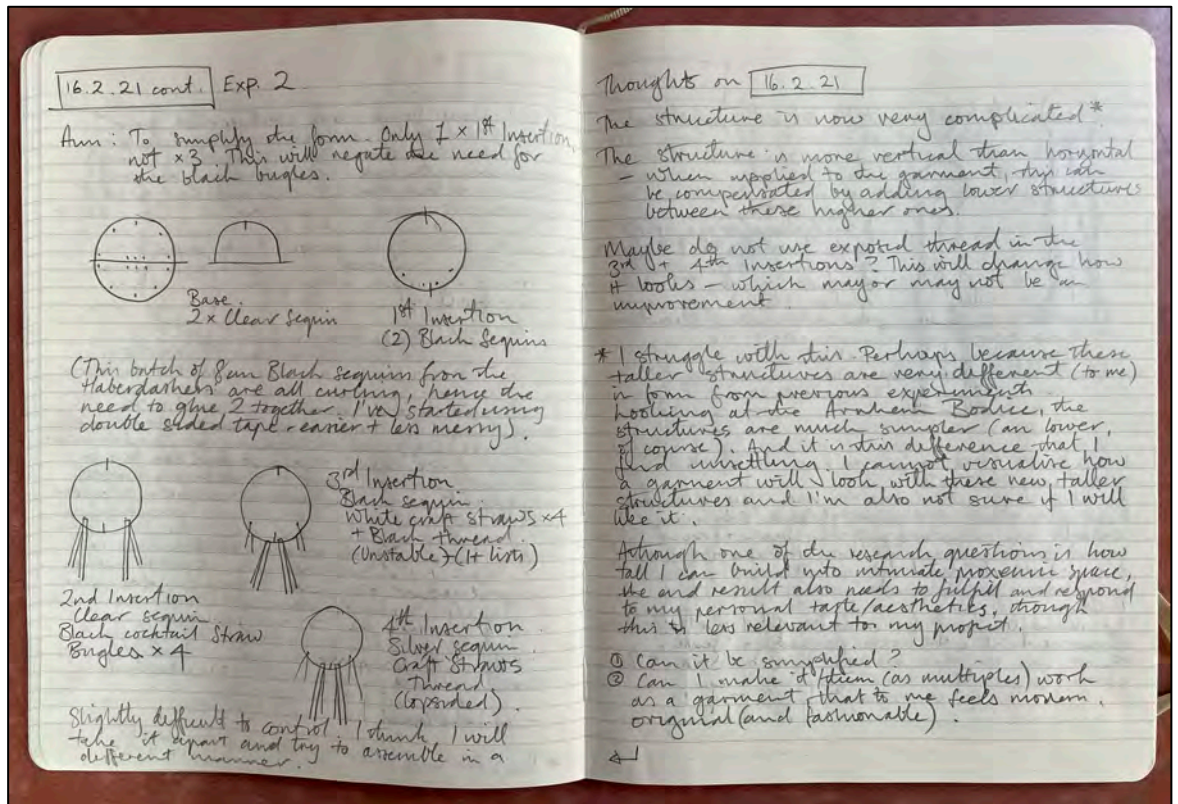 16.2.21 cont. Exp. 2
Aim: To simplify the form. Only 1 x 1st Insertion,
not x3. This will negate the need for
the black bugles.
Base.
2x Clear Sequin
1st Insertion
(2) Black Sequins
(This batch of 8mm Black sequins from the
Haberdashers are all curling, hence the
need to glue 2 together. I've started using
double sided tape - easier + less messy).
3rd Insertion
Black sequin.
White craft straws x4
+ Black thread.
(Unstable) + (It lists)
2nd Insertion
Clear sequin
Black cocktail Straw
Bugles x 4
4th Insertion
Silver sequin
Craft Straws
Thread
(lopsided).
Slightly difficult to control. I think I will
take it apart and try to assemble in a
different manner.
Thoughts on 16.2.21
The structure is now very complicated*
The structure is more vertical than horizontal
- when applied to the garment, this can
be compensated by adding lower structures
between these higher ones.
Maybe do not use exposed thread in the
3rd + 4th Insertions? This will change how
it looks - which may or may not be an
improvement.
* I struggle with this. Perhaps because these
taller structures are very different (to me)
in form from previous experiments.
Looking at the Arnhem Bodice, the
structures are much simpler (an lower,
of course). And it is this difference that I
find unsettling. I cannot visualise how
a garment will look with these new, taller
structures and I'm also not sure if I will
like it.
Although one of the research questions is how
tall I can build into intimate proxemic space,
the end result also needs to fulfil and respond
to my personal taste/aesthetics, though
this is less relevant for my project.
① Can it be simplified?
② Can I make it/them (as multiples) work
as a garment that to me feels modern,
original (and fashionable).